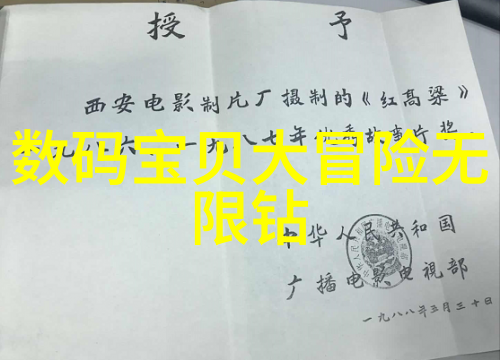 授 予
西安电影制片厂摄制的《红高粱》
九八六 一九八七年 故事片奖
数码宝贝大冒险无
限钻
中华人民共和国
广播电影电視部
一九八八年三月三十日